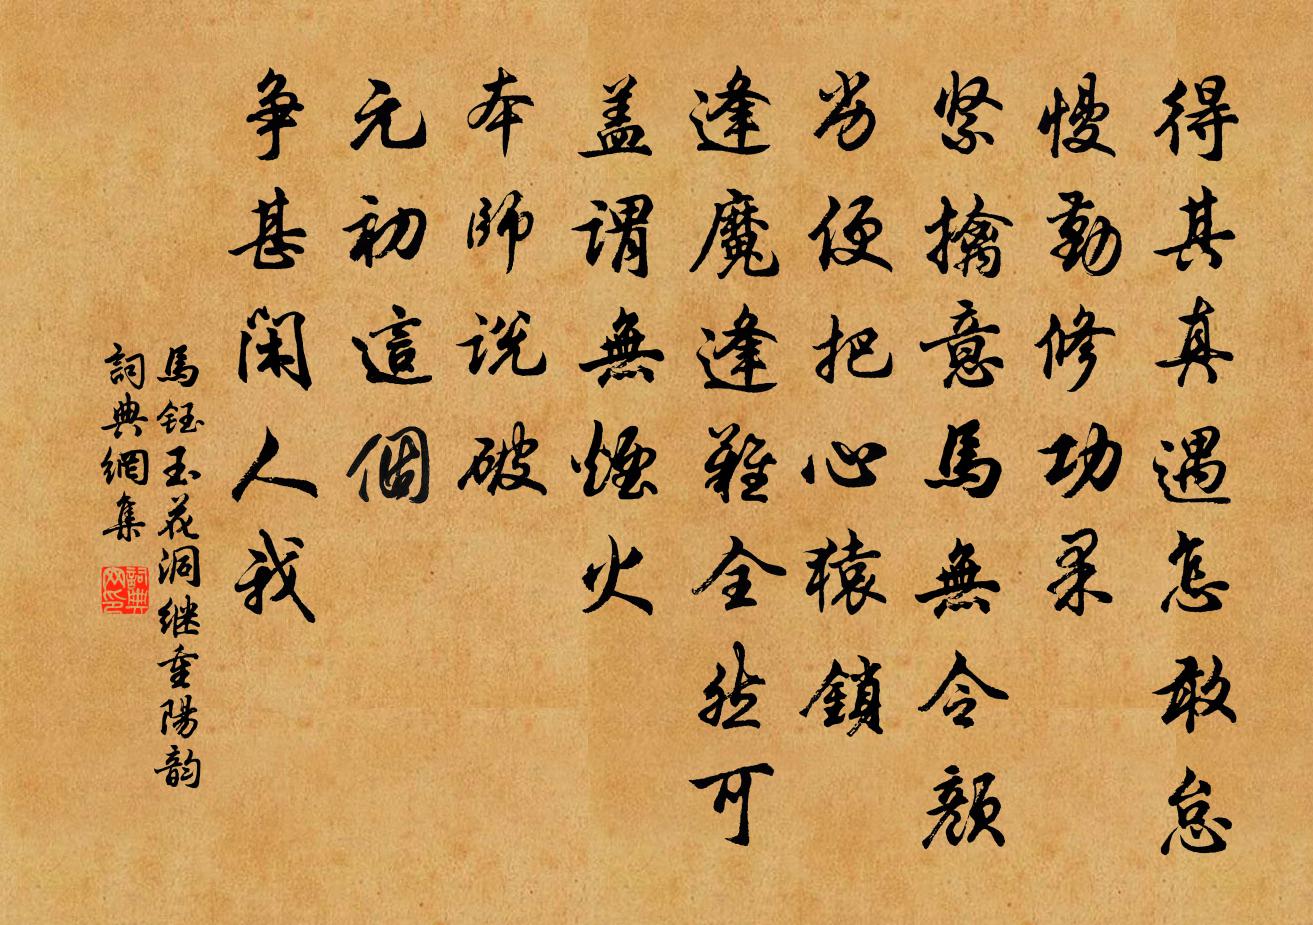 得其真遇怎敢怠
慢勤修功果
紧擒意馬無令顛
劣便把心猿鎖
逢魔逢難全然可
蓋謂無煙火
本師説破
元初這個
爭甚閑人我
馬鈺玉花洞继重陽韵
詞典網集
詞典网印